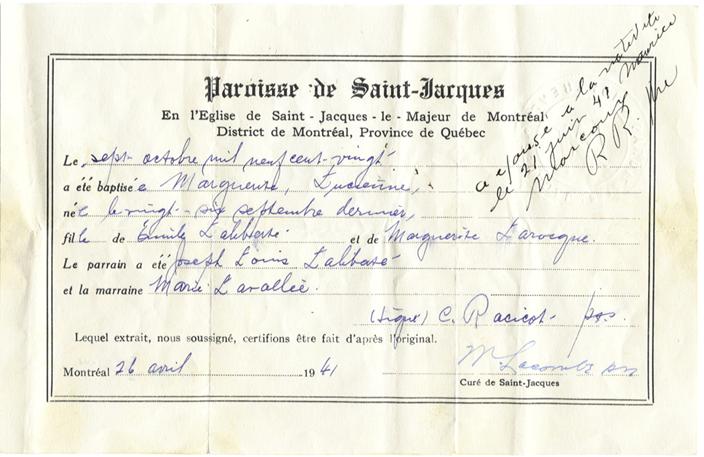 Paroisse de Saint-Jacques
En l'Eglise de Saint - Jacques - le - Majeur de Montréal
District de Montréal, Province de Québec
Le sept octobre mil neuf cent-vingt
a été baptisée Marguerite, Lucienne,
née le vingt-six septembre dernier,
fille de Émile Laliberté et de Marguerite Larocque.
Le parrain a été Joseph Louis Laliberté
et la marraine Marie Lavallée.
(Signé) C. Racicot pss.
Lequel extrait, nous soussigné, certifions être fait d'après l'original.
Montréal 26 avril 1941
M. Lacombe
Curé de Saint-Jacques
a épousé à la nativité
le 21 juin 41 Maurice
Marcoux
R R.